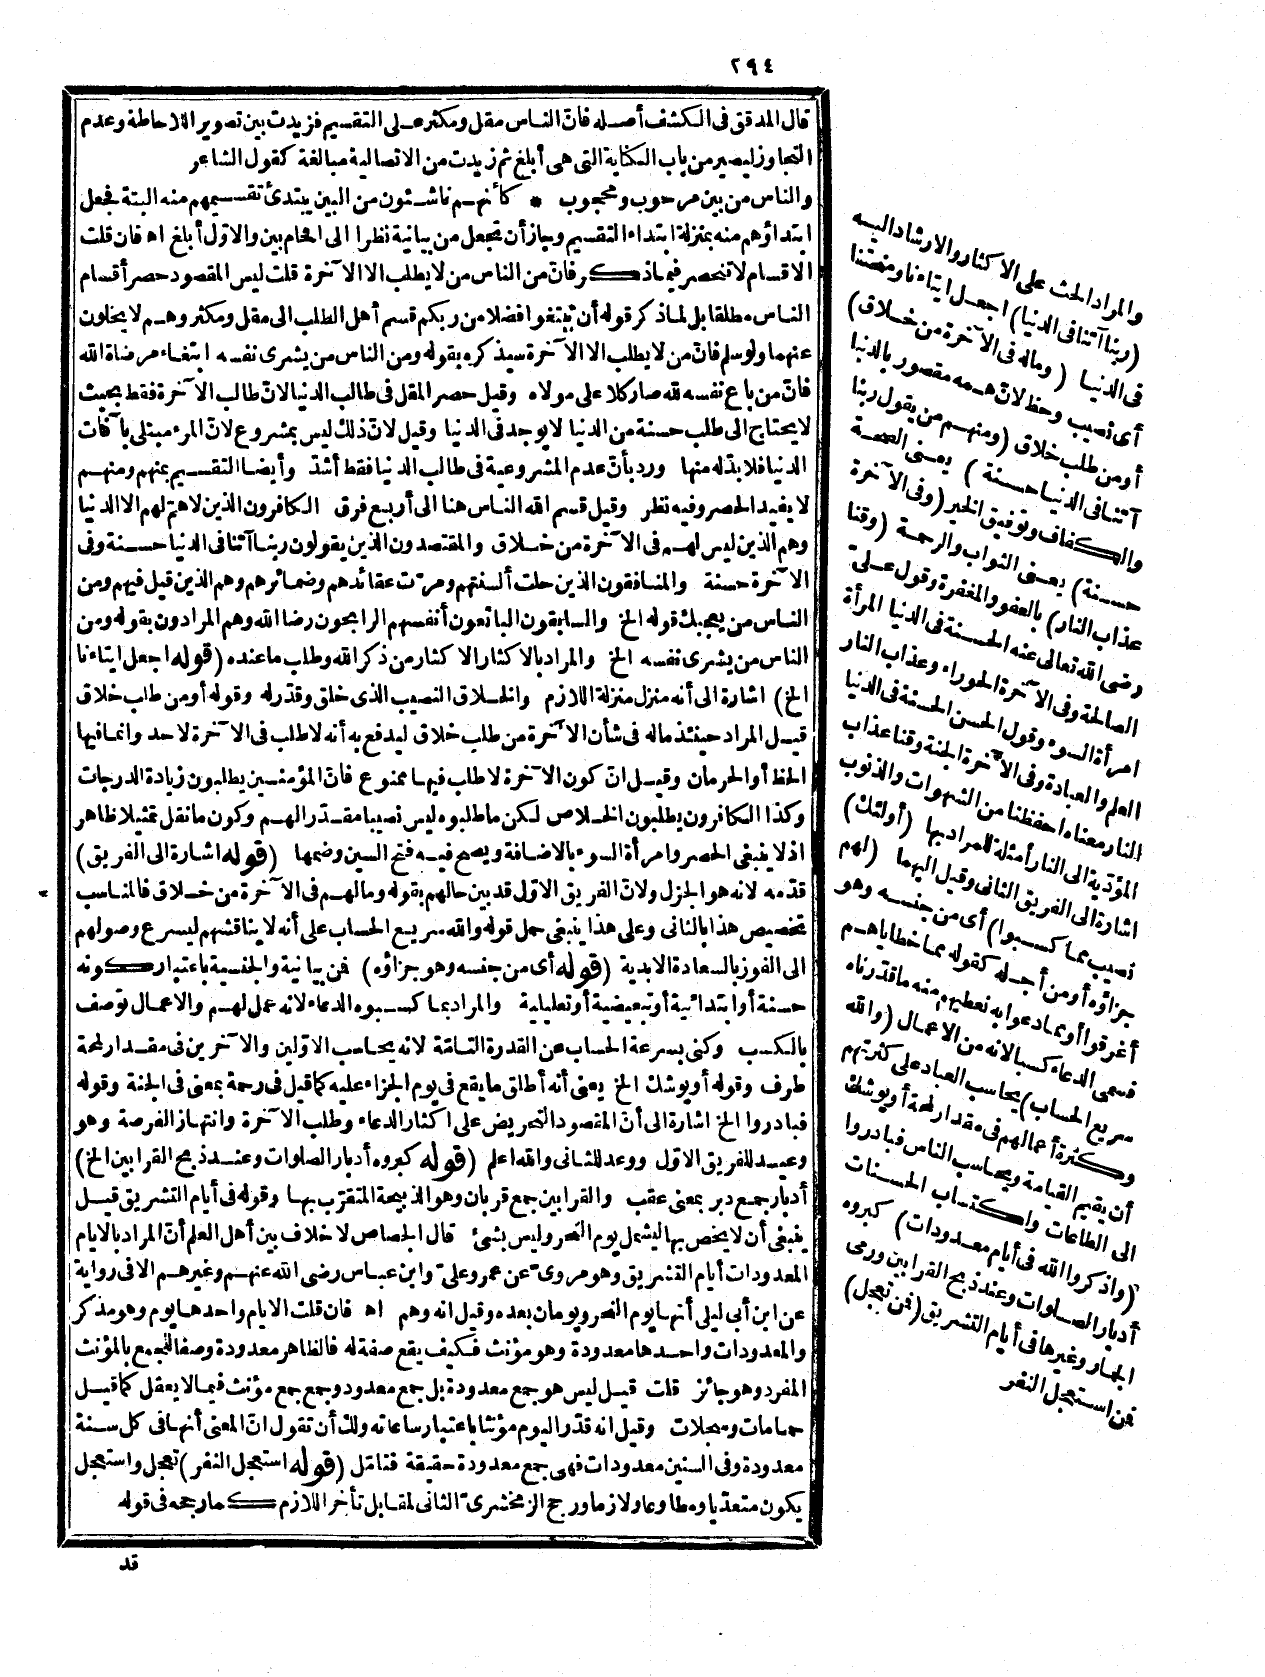 ٢٩٤
قال المدقق فى الكشف أصله فانّ الناس مقل ومكثر على التقسيم فزيدت بين تصوير الاحاطة وعدم
التجاوز ليصير من باب الكناية التى هى أبلغ ثم زيدت من الاتصالية مبالغة كقول الشاعر
والناس من بين مرحوب ومحجوب * كأنهم ناشئون من البين يبتدئ تقسيمهم منه البتة فجعل
ابتداؤهم منه بمنزلة ابتداء التقسيم وجاز أن تجعل من بيانية نظرا الى اقحام بين والاول أبلغ اه فان قلت
الاقسام لا تنحصر فيما ذكر فانّ من الناس من لا يطلب الا الآخرة قلت ليس المقصود حصر أقسام
الناس مطلقا بل لما ذكر قوله أن تبتغوا فضلا من ربكم قسم أهل الطلب الى مقل ومكثر وهم لا يخلون
عنهما ولو سلم فانّ من لا يطلب الا الآخرة سيذكره بقوله ومن الناس من يشرى نفسه ابتغاء مرضاة الله
فانّ من باع نفسه لله صار كلا على مولاه وقيل حصر المقل فى طالب الدنيا لانّ طالب الآخرة فقط بحيث
لا يحتاج الى طلب حسنة من الدنيا لا يوجد فى الدنيا وقيل لانّ ذلك ليس بمشروع لانّ المرء مبتلى بآفات
الدنيا فلا بدّ له منها وردّ بأنّ عدم المشروعية فى طالب الدنيا فقط أشدّ وأيضا التقسيم بمنهم ومنهم
لا يفيد الحصر وفيه نظر وقيل قسم الله الناس هنا الى أربع فرق الكافرون الذين لا همّ لهم الا الدنيا
وهم الذين ليس لهم فى الآخرة من خلاق والمقتصدون الذين يقولون ربنا آتنا فى الدنيا حسنة وفى
الآخرة حسنة والمنافقون الذين حلت ألسنتهم ومرّت عقائدهم وضمائرهم وهم الذين قيل فيهم ومن
الناس من يعجبك قوله الخ والسابقون البائعون أنفسهم الرابحون رضا الله وهم المرادون بقوله ومن
الناس من يشرى نفسه الخ والمراد بالاكثار الاكثار من ذكر الله وطلب ما عنده (قوله اجعل ايتاءنا
الخ) اشارة الى أنه منزل منزلة اللازم والخلاق النصيب الذى خلق وقدّر له وقوله أو من طلب خلاق
قيل المراد حينئذ ماله فى شأن الآخرة من طلب خلاق ليدفع به أنه لا طلب فى الآخرة لاحد وانما فيها
الحظ أو الحرمان وقيل انّ كون الآخرة لا طلب فيها ممنوع فانّ المؤمنين يطلبون زيادة الدرجات
وكذا الكافرون يطلبون الخلاص لكن ما طلبوه ليس نصيبا مقدّرا لهم وكون ما نقل تمثيلا ظاهر
اذ لا ينبغى الحصر وامرأة السوء بالاضافة ويصح فيه فتح السين وضمها (قوله اشارة الى الفريق)
قدّمه لانه هو الجزل ولانّ الفريق الاوّل قد بين حالهم بقوله ومالهم فى الآخرة من خلاق فالمناسب
تخصيص هذا بالثانى وعلى هذا ينبغى حمل قوله والله سريع الحساب على أنه لا يناقشهم ليسرع وصولهم
الى الفوز بالسعادة الابدية (قوله أى من جنسه وهو جزاؤه) فمن بيانية والجنسية باعتبار كونه
حسنة أو ابتدائية أو تبعيضية أو تعليلية والمراد بما كسبوه الدعاء لانه عمل لهم والاعمال توصف
بالكسب وكنى بسرعة الحساب عن القدرة التامّة لانه يحاسب الاوّلين والآخرين فى مقدار لمحة
طرف وقوله أو يوشك الخ يعنى أنه أطلق ما يقع فى يوم الجزاء عليه كما قيل فى رحمة بمعنى فى الجنة وقوله
فبادروا الخ اشارة الى أنّ المقصود التحريض على اكثار الدعاء وطلب الآخرة وانتهاز الفرصة وهو
وعيد للفريق الاوّل ووعد للثانى والله اعلم (قوله كبروه أدبار الصلوات وعند ذبح القرابين الخ)
أدبار جمع دبر بمعنى عقب والقرابين جمع قربان وهو الذبيحة المتقرّب بها وقوله فى أيام التشريق قيل
ينبغى أن لا يخص بها ليشمل يوم النحر وليس بشئ قال الجصاص لا خلاف بين أهل العلم أنّ المراد بالايام
المعدودات أيام التشريق وهو مروىّ عن عمر وعلىّ وابن عباس رضى الله عنهم وغيرهم الا فى رواية
عن ابن أبى ليلى أنها يوم النحر ويومان بعده وقيل انه وهم اه فان قلت الايام واحدها يوم وهو مذكر
والمعدودات واحدها معدودة وهو مؤنث فكيف يقع صفة له فالظاهر معدودة وصفا للجمع بالمؤنث
المفرد وهو جائز قلت قيل ليس هو جمع معدودة بل جمع معدود وجمع جمع مؤنث فيما لا يعقل كما قيل
حمامات وسجلات وقيل انه قدّر اليوم مؤنثا باعتبار ساعاته ولك أن تقول انّ المعنى أنها فى كل سنة
معدودة وفى السنين معدودات فهى جمع معدودة حقيقة فتأمّل (قوله استعجل النفر) تعجل واستعجل
يكون متعدّيا ومطاوعا ولازما ورجح الزمخشرىّ الثانى لمقابل تأخر اللازم كما رجحه فى قوله
قد
والمراد الحث على الاكثار والارشاد اليه
(ربنا آتنا فى الدنيا) اجعل ايتاءنا ومنحتنا
فى الدنيا (وماله فى الآخرة من خلاق)
أى نصيب وحظ لانّ همه مقصور بالدنيا
أو من طلب خلاق (ومنهم من يقول ربنا
آتنا فى الدنيا حسنة) يعنى الصحة
والكفاف وتوفيق الخير (وفى الآخرة
حسنة) يعنى الثواب والرحمة (وقنا
عذاب النار) بالعفو والمغفرة وقول علىّ
رضى الله تعالى عنه الحسنة فى الدنيا المرأة
الصالحة وفى الآخرة الحوراء وعذاب النار
امرأة السوء وقول الحسن الحسنة فى الدنيا
العلم والعبادة وفى الآخرة الجنة وقنا عذاب
النار معناه احفظنا من الشهوات والذنوب
المؤدّية الى النار أمثلة للمراد بها (أولئك)
اشارة الى الفريق الثانى وقيل اليهما (لهم
نصيب مما كسبوا) أى من جنسه وهو
جزاؤه أو من أجله كقوله مما خطاياهم
أغرقوا أو مما دعوا به نعطيهم منه ما قدّرناه
فسمى الدعاء كسبا لانه من الاعمال (والله
سريع الحساب) يحاسب العباد على كثرتهم
وكثرة أعمالهم فى مقدار لمحة أو يوشك
أن يقيم القيامة ويحاسب الناس فبادروا
الى الطاعات واكتساب الحسنات
(واذكروا الله فى أيام معدودات) كبروه
أدبار الصلوات وعند ذبح القرابين ورمى
الجمار وغيرها فى أيام التشريق (فمن تعجل)
فمن استعجل النفر